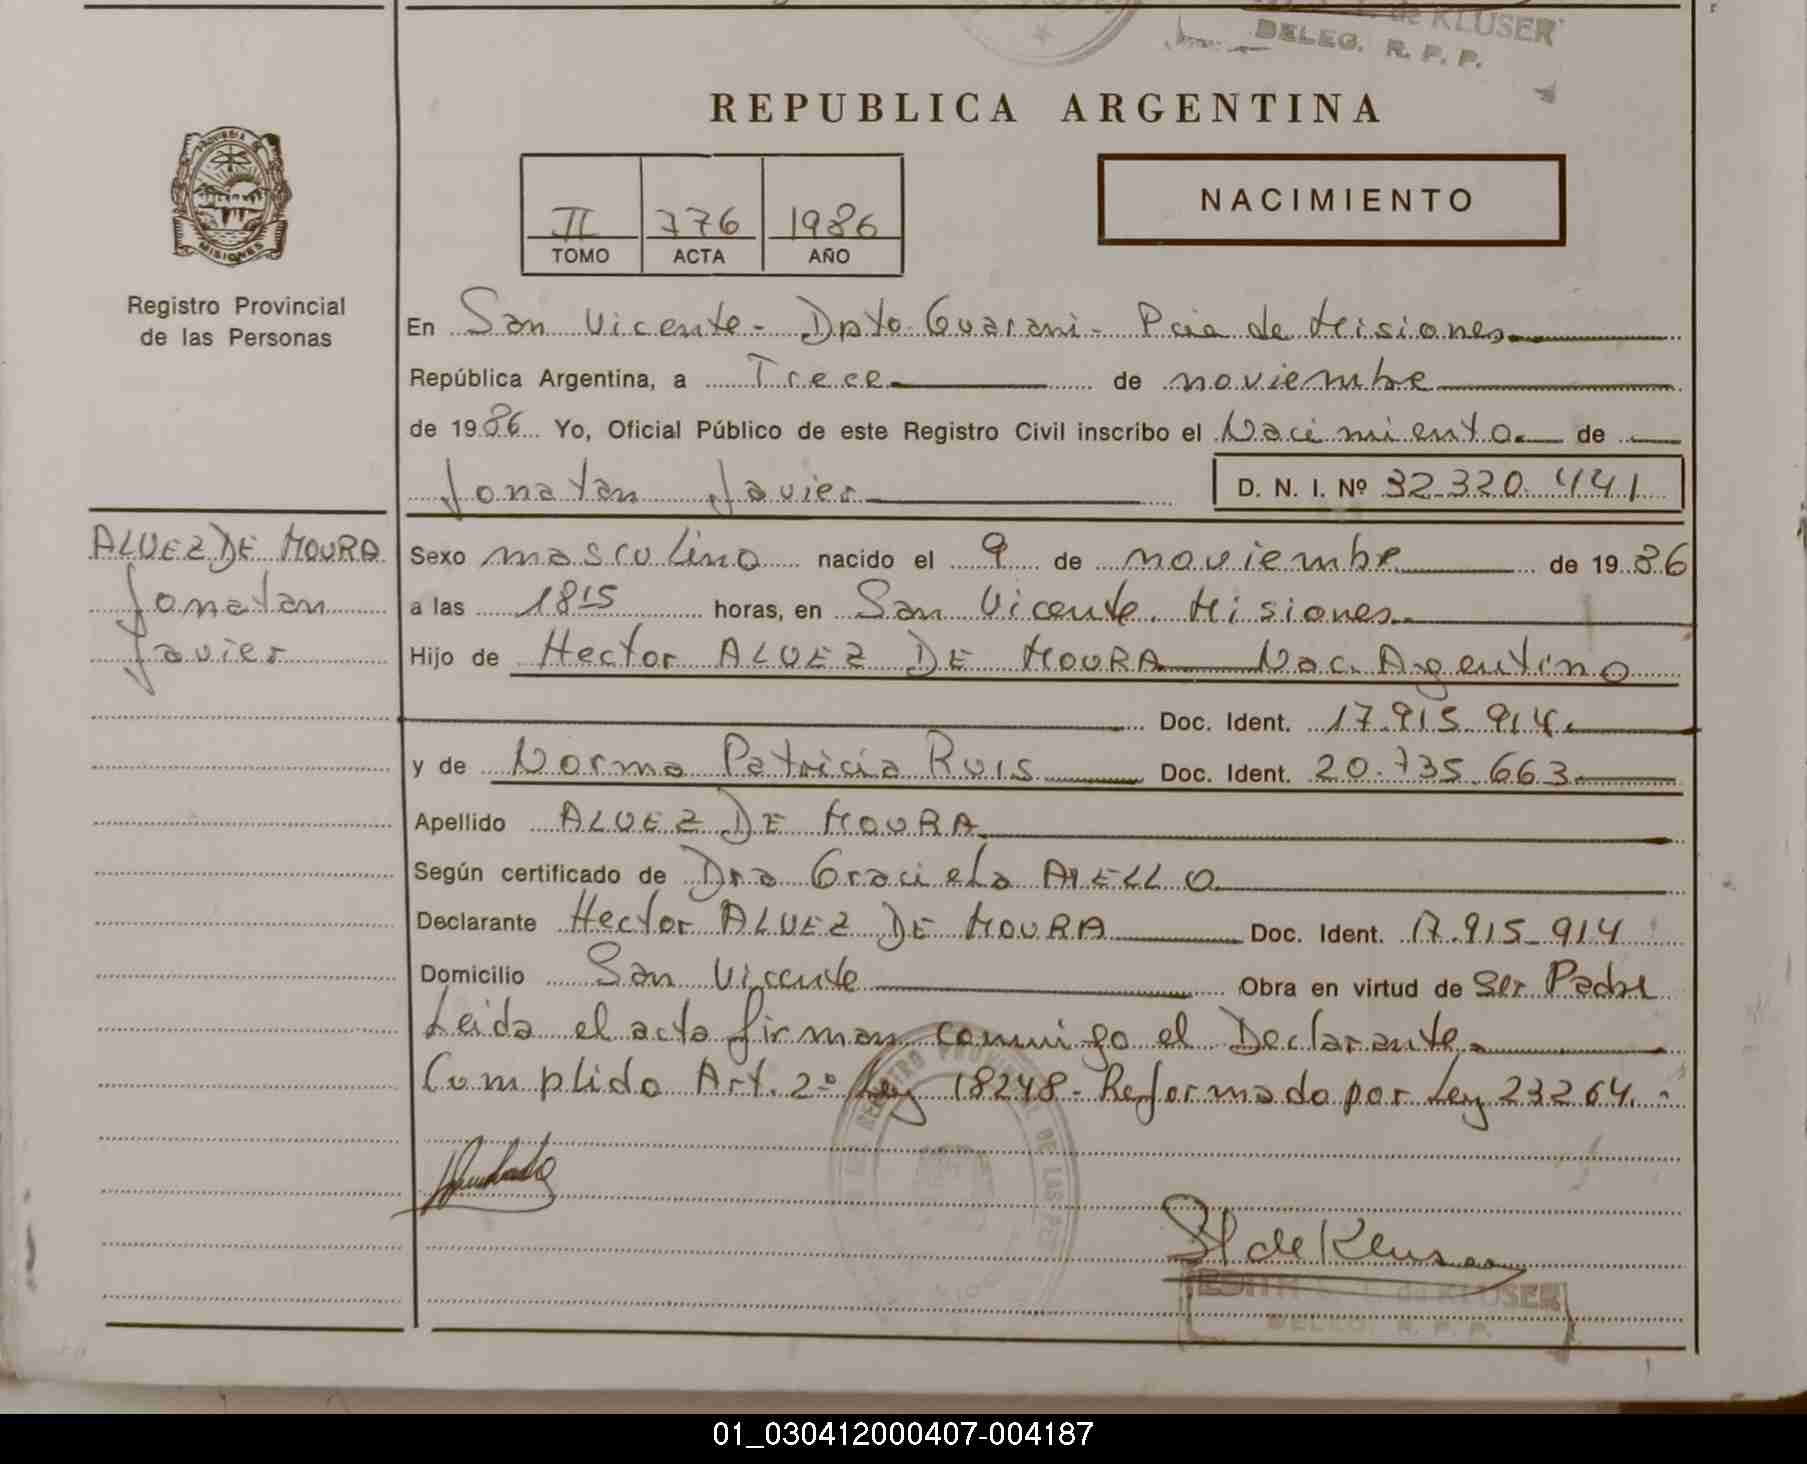 de KLUSER
DELEG. R. P. P.
REPUBLICA ARGENTINA
PROVINCIA DE MISIONES
II 776 1986
TOMO ACTA AÑO
NACIMIENTO
Registro Provincial
de las Personas
En San Vicente - Dpto Guarani - Pcia de Misiones
República Argentina, a Trece de noviembre
de 1986 Yo, Oficial Público de este Registro Civil inscribo el Nacimiento de
Jonatan Javier D. N. I. Nº 32.320.441
ALVEZ DE MOURA
Jonatan
Javier
Sexo masculino nacido el 9 de noviembre de 1986
a las 1815 horas, en San Vicente. Misiones.
Hijo de Hector ALVEZ DE MOURA Nac. Argentino
Doc. Ident. 17.915.914.
y de Norma Patricia RUIS Doc. Ident. 20.735.663
Apellido ALVEZ DE MOURA
Según certificado de Dra Graciela AIELLO
Declarante Hector ALVEZ DE MOURA Doc. Ident. 17.915.914
Domicilio San Vicente Obra en virtud de Ser Padre
Leida el acta firman conmigo el Declarante.
Cumplido Art. 2º Ley 18248 - Reformado por Ley 23264.-
REGISTRO PROVINCIAL DE LAS PE
de Kluser
EDITH de KLUSER
DELEG. R. P. P.
01_030412000407-004187